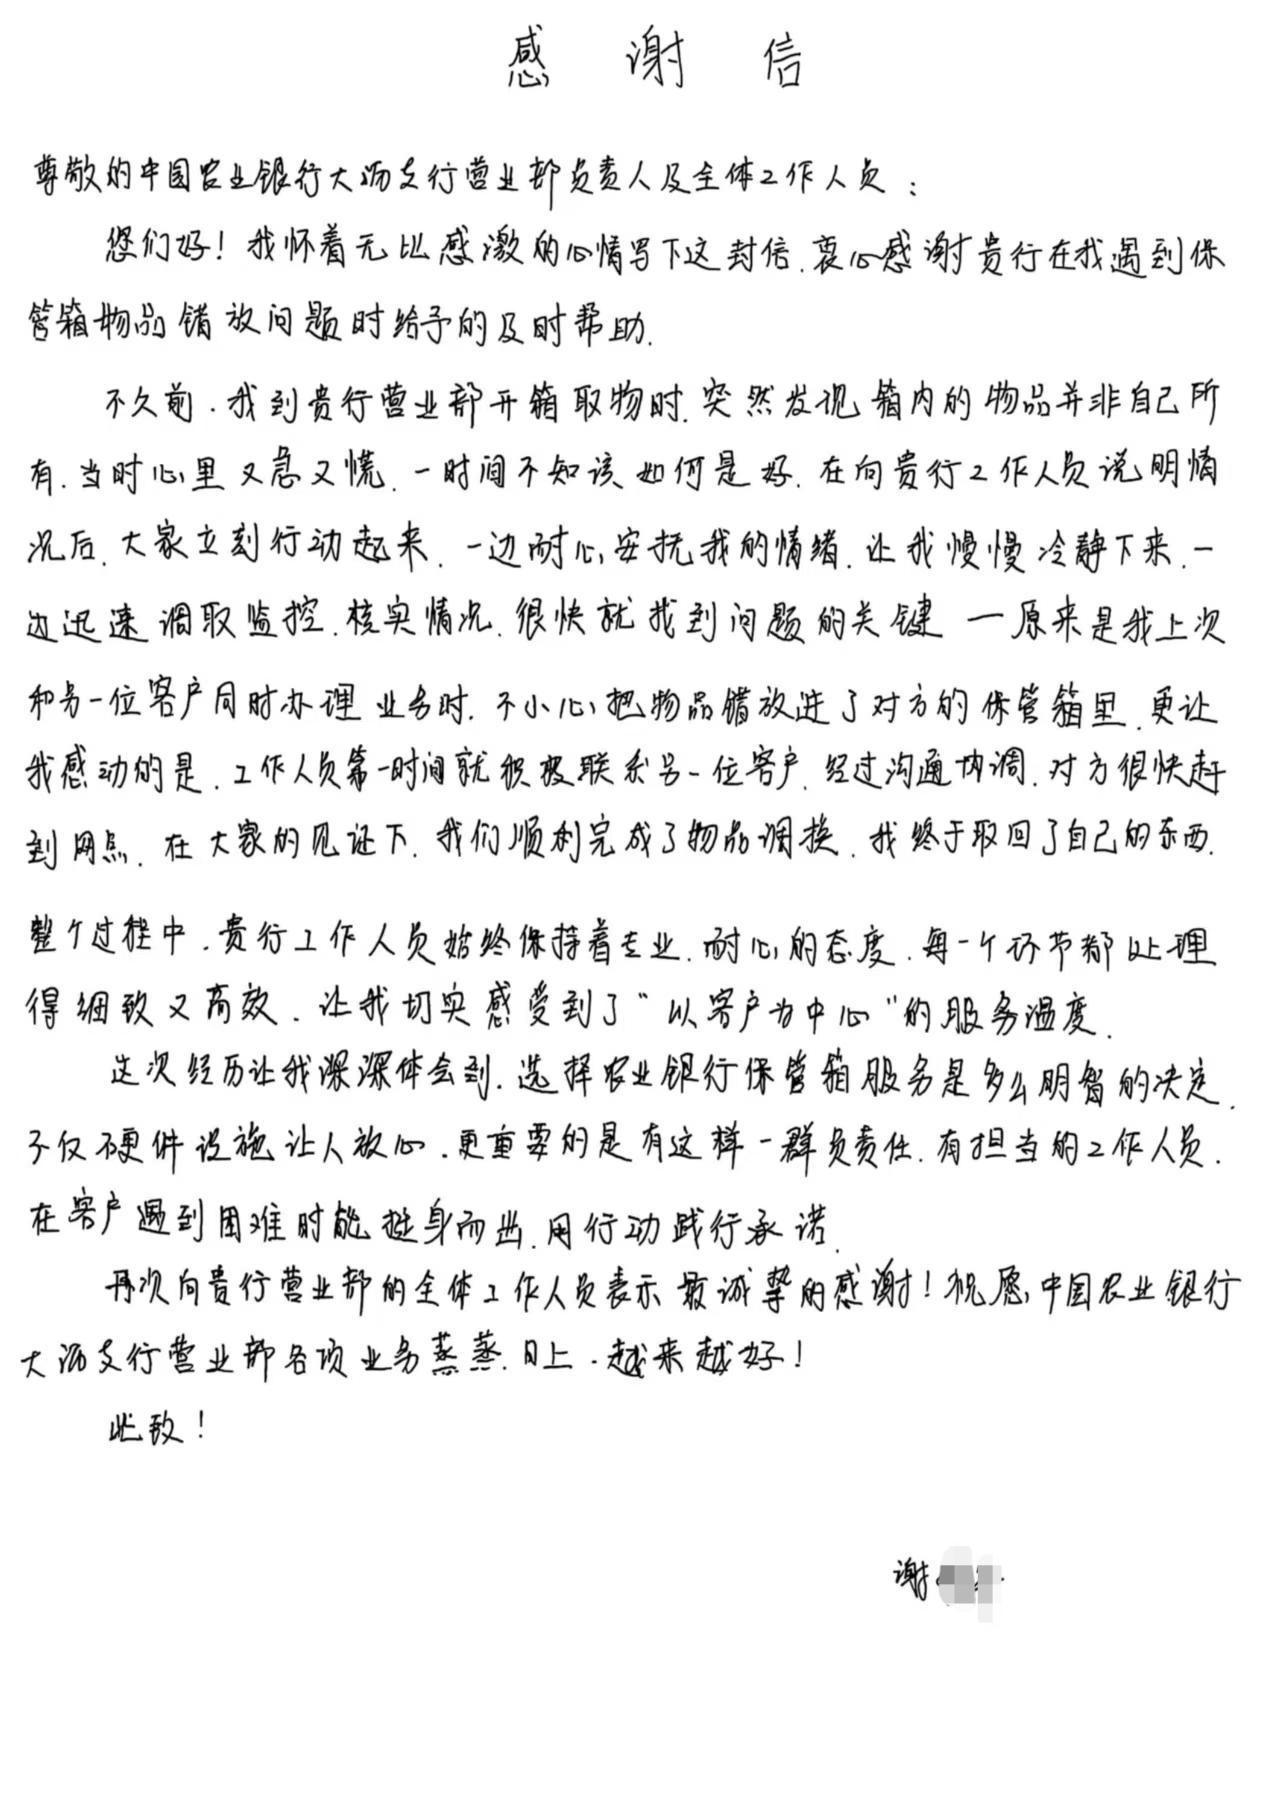 感谢信
尊敬的中国农业银行大沥支行营业部负责人及全体工作人员：
您们好！我怀着无比感激的心情写下这封信，衷心感谢贵行在我遇到保
管箱物品错放问题时给予的及时帮助.
不久前，我到贵行营业部开箱取物时，突然发现箱内的物品并非自己所
有.当时心里又急又慌，一时间不知该如何是好.在向贵行工作人员说明情
况后，大家立刻行动起来，一边耐心安抚我的情绪，让我慢慢冷静下来，一
边迅速调取监控，核实情况，很快就找到问题的关键 — 原来是我上次
和另一位客户同时办理业务时，不小心把物品错放进了对方的保管箱里.更让
我感动的是，工作人员第一时间就积极联系另一位客户，经过沟通协调，对方很快赶
到网点，在大家的见证下，我们顺利完成了物品调换，我终于取回了自己的东西.
整个过程中，贵行工作人员始终保持着专业、耐心的态度，每一个环节都处理
得细致又高效，让我切实感受到了“以客户为中心”的服务温度.
这次经历让我深深体会到，选择农业银行保管箱服务是多么明智的决定.
不仅硬件设施让人放心，更重要的是有这样一群负责任、有担当的工作人员，
在客户遇到困难时能挺身而出，用行动践行承诺.
再次向贵行营业部的全体工作人员表示最诚挚的感谢！祝愿中国农业银行
大沥支行营业部各项业务蒸蒸日上，越来越好！
此致！
谢